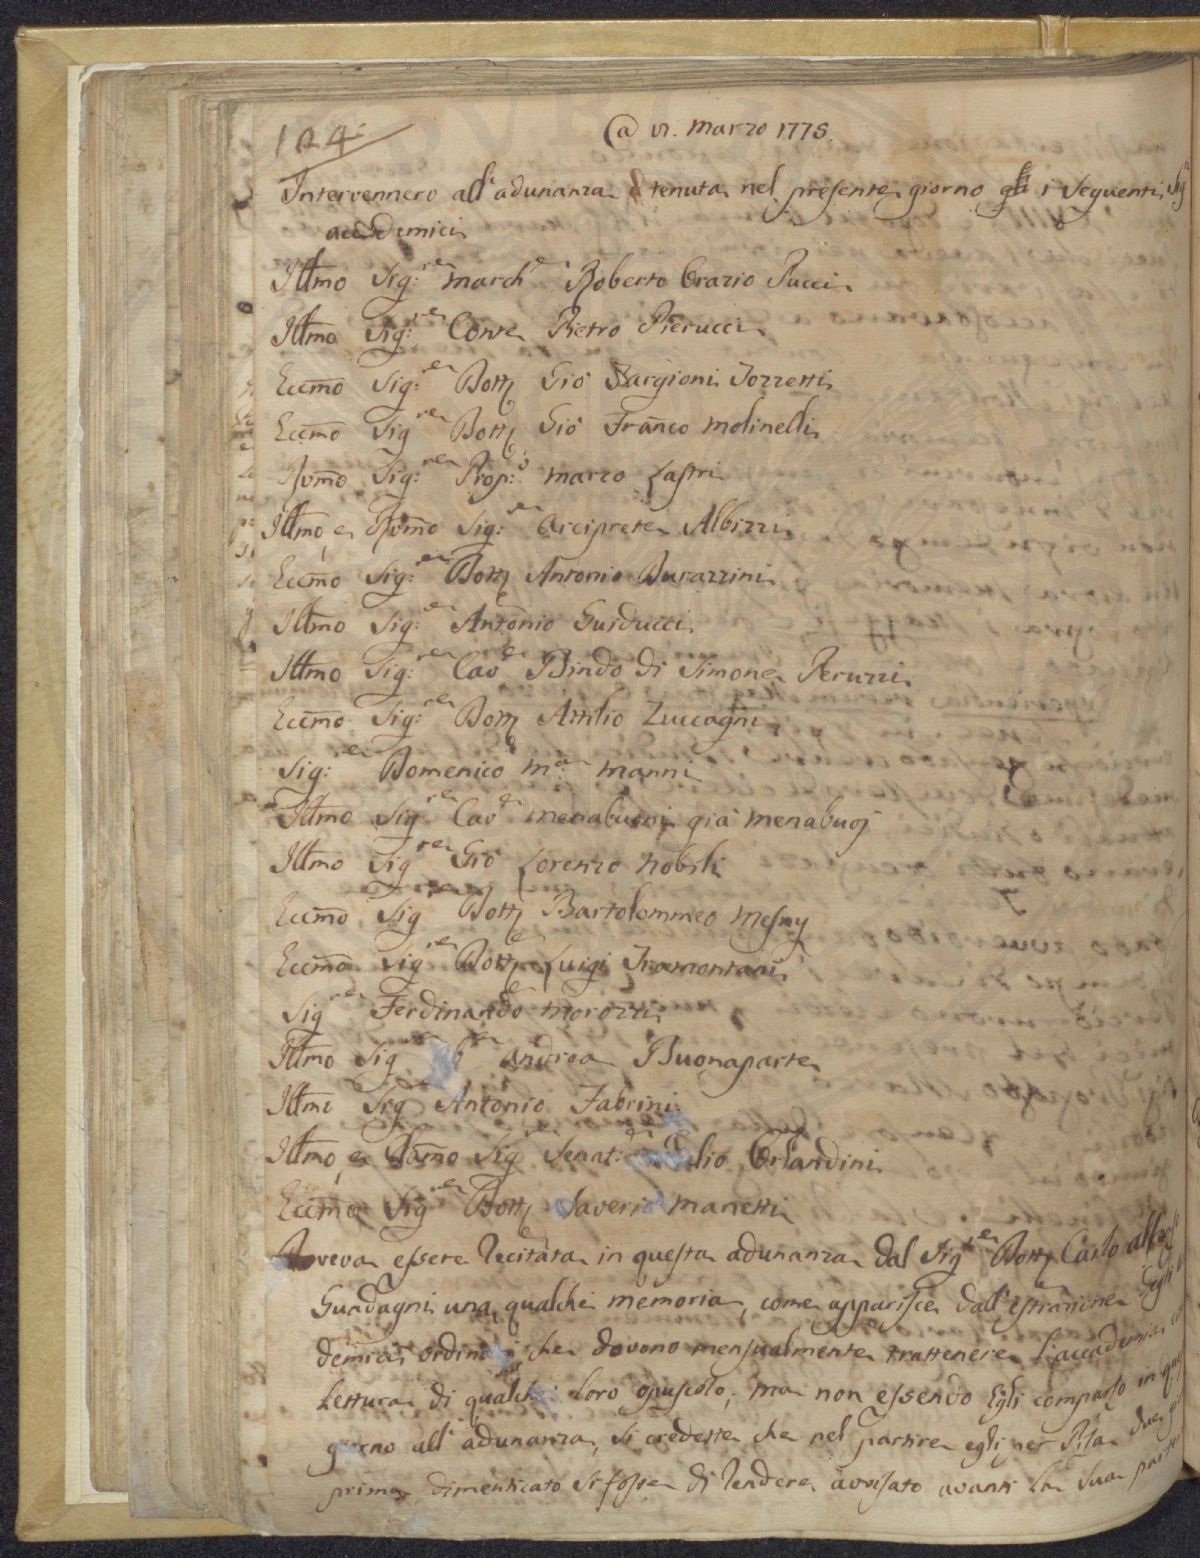 124
@ VI. Marzo 1775.
Intervennero all'adunanza tenuta nel presente giorno gli i Seguenti Sig
accademici
Illmo Sig:re March:e Roberto Orazio Pucci
Illmo Sig:re Conte Pietro Pierucci
Eccmo Sig:re Dott Gio Targioni Tozzetti
Eccmo Sig:re Dott Gio Franco Molinelli
Rvmo Sig:re Prop:o Marco Lastri
Illmo e Rvmo Sig:re Arciprete Albizzi
Eccmo Sig:re Dott Antonio Durazzini
Illmo Sig:re Antonio Guiducci
Illmo Sig:re Cav:e Bindo di Simone Peruzzi
Eccmo Sig:re Dott Attilio Zuccagni
Sig:re Domenico M:a Manni
Illmo Sig:re Cav:e Menabuoni già Menabuoj
Illmo Sig:re Gio Lorenzo Nobili
Eccmo Sig:re Dott Bartolommeo Mesny
Eccmo Sig:re Dott Luigi Tramontani
Sig:re Ferdinando Morozzi
Illmo Sig:re Andrea Buonaparte
Illmi Sig:re Antonio Fabrini
Illmo e Clamo Sig:re Senat:re Orlandini
Eccmo Sig:re Dott Saverio Manetti
Doveva essere recitata in questa adunanza dal Sig:re Dott Carlo
Guadagni una qualche memoria, come apparisce dall'estrazione degli
demici ordini che devono mensualmente trattenere l'accademia
Lettura di qualche loro opuscolo; ma non essendo Egli comparso in
giorno all'adunanza, si credette che nel partire egli per Pisa due
prima dimenticato si fosse di rendere avvisato avanti la Sua